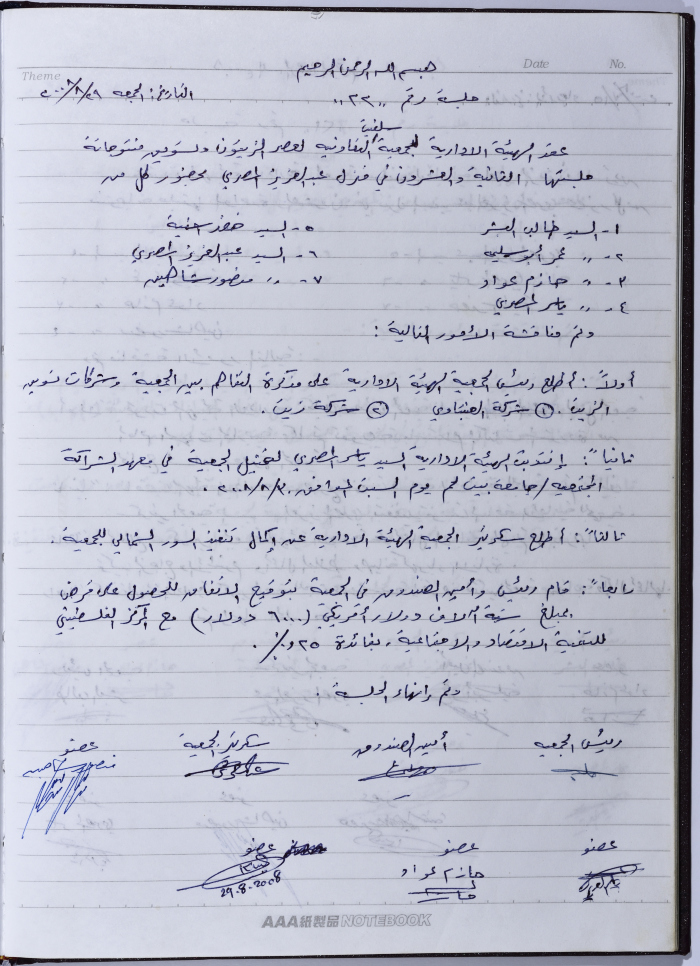 Theme
Date
No.
بسم الله الرحمن الرحيم
جلسة رقم "٢٢"
التاريخ: الجمعه ٢٠٠٨/٨/٢٩
سلفيت
عقد الهيئة الادارية للجمعية التعاونيه لعصر الزيتون وتسويق منتوجاته
جلستها الثانية والعشرون في منزل عبد العزيز المصري بحضور كل من
١- السيد طالب
٥- السيد خضر
٢- " عمر
٦- السيد عبد العزيز المصري
٣- " حازم عواد
٧- " منصور شاهين
٤- " ياسر المصري
وتم مناقشة الأمور التالية :
أولاً : أطلع رئيس الجمعية الهيئة الادارية على مذكرة التفاهم بين الجمعية وشركات تسويق
الزيت . ① شركة ② شركة زيت .
ثانياً : إنتدبت الهيئة الادارية السيد ياسر المصري لتمثيل الجمعية في معهد الشراكة
المجتمعية / جامعة بيت لحم يوم السبت الموافق ٢٠٠٨/٨/٣٠ .
ثالثاً : أطلع سكرتير الجمعية الهيئة الادارية عن إكمال تنفيذ السور الشمالي للجمعية .
رابعاً : قام رئيس وأمين الصندوق في الجمعية بتوقيع الاتفاق للحصول على قرض
بمبلغ ستة آلاف دولار أمريكي (٦٠٠٠ دولار) مع المركز الفلسطيني
للتنمية الاقتصادية والاجتماعية ، بفائدة
وتم إنهاء الجلسة .
رئيس الجمعيه
أمين الصندوق
سكرتير الجمعية
عضو
عضو
عضو
عضو
حازم عواد
29-8-2008
AAA紙製品NOTEBOOK